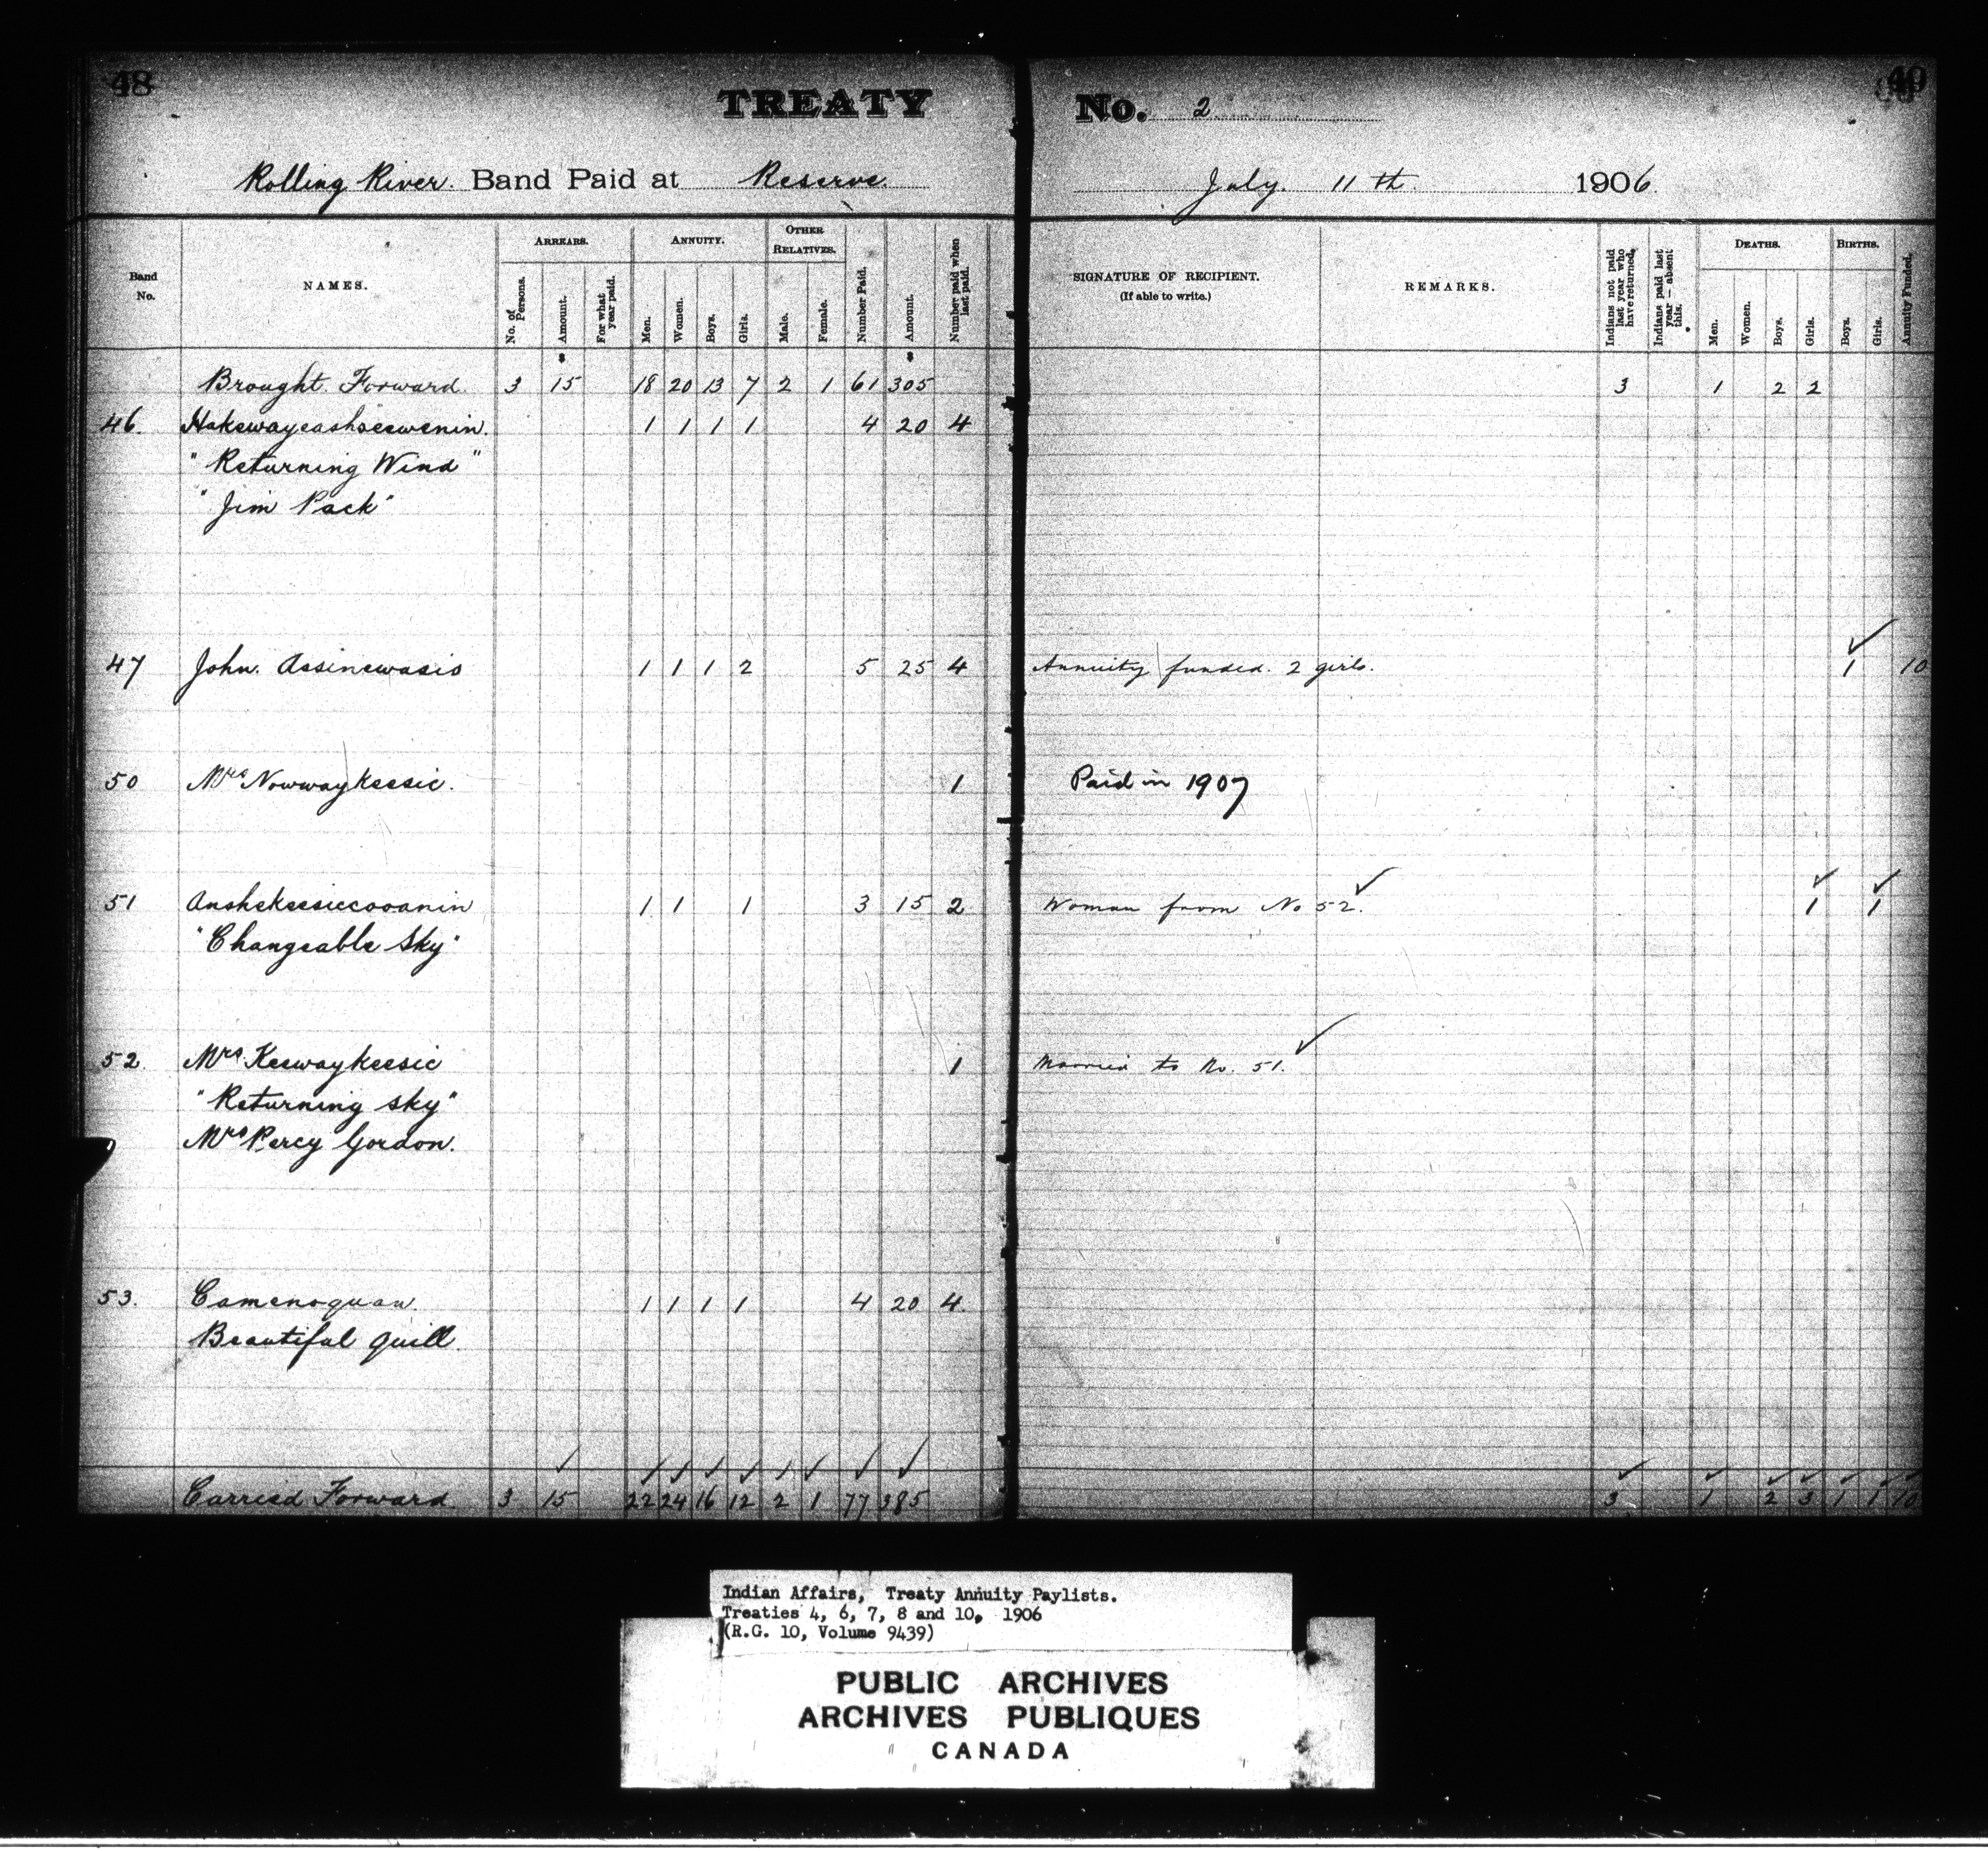 48
TREATY No. 2
49
Rolling River. Band Paid at Reserve. July. 11th. 1906.
Band No.
NAMES.
ARREARS.
No. of Persons.
Amount.
For what year paid.
ANNUITY.
Men.
Women.
Boys.
Girls.
OTHER RELATIVES.
Male.
Female.
Number Paid.
Amount.
Number paid when last paid.
SIGNATURE OF RECIPIENT.
(If able to write.)
REMARKS.
Indians not paid last year who have returned.
Indians paid last year — absent this.
DEATHS.
Men.
Women.
Boys.
Girls.
BIRTHS.
Boys.
Girls.
Annuity Funded.
Brought Forward. 3 15 18 20 13 7 2 1 61 305 3 1 2 2
46. 1 1 1 1 4 20 4
"Returning Wind"
"Jim Pack"
47 John. Assinewasis 1 1 1 2 5 25 4 Annuity funded. 2 girls. 1 10
50 Mrs Nowwaykeesic. 1 Paid in 1907
51 Anshekeesiccooanin 1 1 1 3 15 2 Woman from No 52. 1 1
"Changeable Sky"
52. Mrs. Keewaykeesic 1 Married to No. 51.
"Returning Sky"
Mrs Percy Gordon.
53. Camenoquan 1 1 1 1 4 20 4
Beautiful quill.
Carried Forward 3 15 22 24 16 12 2 1 77 385 3 1 2 3 1 1 10
Indian Affairs, Treaty Annuity Paylists.
Treaties 4, 6, 7, 8 and 10, 1906
(R.G. 10, Volume 9439)
PUBLIC ARCHIVES
ARCHIVES PUBLIQUES
CANADA